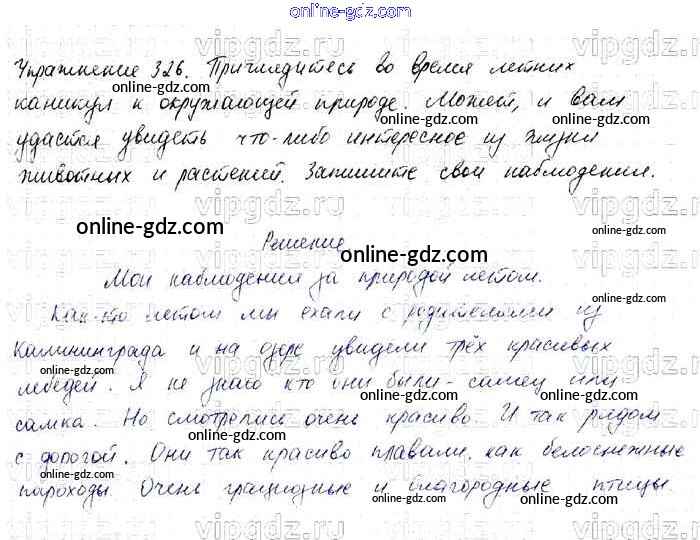 online-gdz.com
Упражнение 326. Приглядитесь во время летних
каникул к окружающей природе. Может, и вам
удастся увидеть что-либо интересное из жизни
животных и растений. Запишите свои наблюдения.
Решение
Мои наблюдения за природой летом.
Как-то летом мы ехали с родителями из
Калининграда и на озере увидели трёх красивых
лебедей. Я не знаю кто они были - самец или
самка. Но смотрелись очень красиво. И так рядом
с дорогой. Они так красиво плавали, как белоснежные
пароходы. Очень грациозные и благородные птицы.